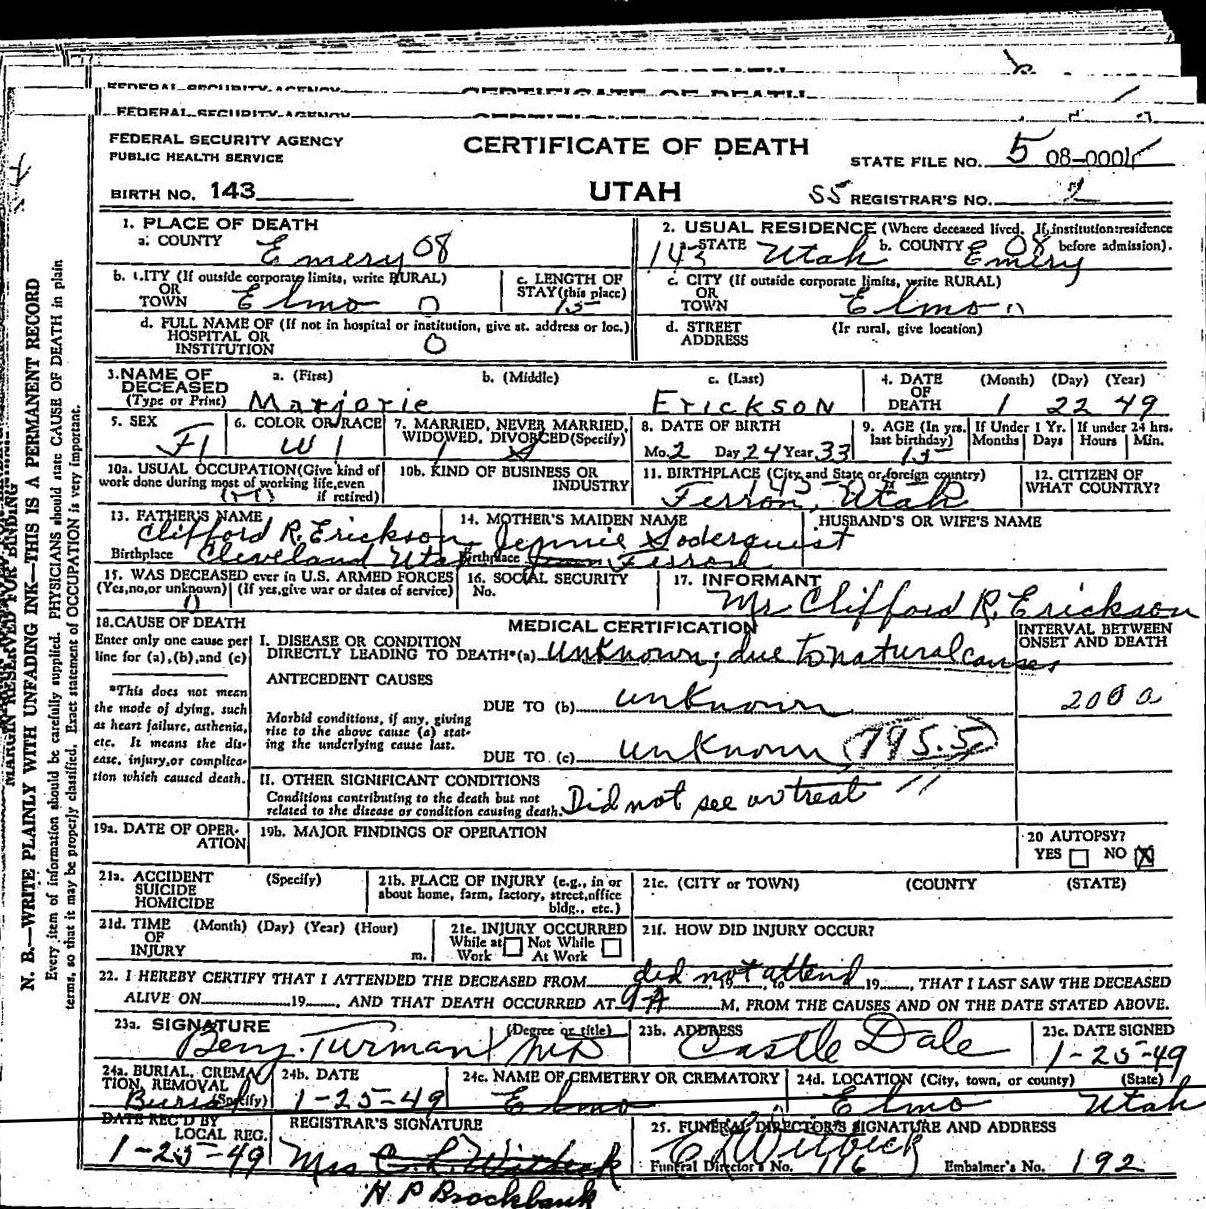 CERTIFICATE OF DEATH
FEDERAL SECURITY AGENCY CERTIFICATE OF DEATH
FEDERAL SECURITY AGENCY
FEDERAL SECURITY AGENCY
PUBLIC HEALTH SERVICE
CERTIFICATE OF DEATH
STATE FILE NO. 5 08-0001
BIRTH NO. 143
UTAH
55 REGISTRAR'S NO. 2
1. PLACE OF DEATH
a. COUNTY Emery 08
2. USUAL RESIDENCE (Where deceased lived. If institution: residence before admission).
143 STATE Utah b. COUNTY Emery 08
b. CITY (If outside corporate limits, write RURAL)
OR
TOWN Elmo 0
c. LENGTH OF
STAY (this place)
15
c. CITY (If outside corporate limits, write RURAL)
OR
TOWN Elmo
d. FULL NAME OF (If not in hospital or institution, give st. address or loc.)
HOSPITAL OR
INSTITUTION 0
d. STREET (If rural, give location)
ADDRESS
3. NAME OF
DECEASED
(Type or Print)
a. (First) b. (Middle) c. (Last)
Marjorie Erickson
4. DATE
OF
DEATH
(Month) (Day) (Year)
1 22 49
5. SEX
F 1
6. COLOR OR RACE
W 1
7. MARRIED, NEVER MARRIED,
WIDOWED, DIVORCED (Specify)
1 S
8. DATE OF BIRTH
Mo. 2 Day 24 Year 33
9. AGE (In yrs.
last birthday)
15
If Under 1 Yr.
Months Days
If under 24 hrs.
Hours Min.
10a. USUAL OCCUPATION (Give kind of
work done during most of working life, even
if retired)
10b. KIND OF BUSINESS OR
INDUSTRY
11. BIRTHPLACE (City and State or foreign country)
Ferron, Utah
12. CITIZEN OF
WHAT COUNTRY?
13. FATHER'S NAME
Clifford R. Erickson
Birthplace Cleveland Utah
14. MOTHER'S MAIDEN NAME
Jennie Soderquist
Birthplace Ferron
HUSBAND'S OR WIFE'S NAME
15. WAS DECEASED ever in U.S. ARMED FORCES
(Yes, no, or unknown) (If yes, give war or dates of service)
0
16. SOCIAL SECURITY
No.
17. INFORMANT
Mr Clifford R. Erickson
18. CAUSE OF DEATH
Enter only one cause per
line for (a), (b), and (c)
*This does not mean
the mode of dying, such
as heart failure, asthenia,
etc. It means the dis-
ease, injury, or complica-
tion which caused death.
MEDICAL CERTIFICATION
INTERVAL BETWEEN
ONSET AND DEATH
I. DISEASE OR CONDITION
DIRECTLY LEADING TO DEATH*(a) unknown; due to natural causes
ANTECEDENT CAUSES
DUE TO (b) unknown
Morbid conditions, if any, giving
rise to the above cause (a) stat-
ing the underlying cause last.
DUE TO (c) unknown 795.5
II. OTHER SIGNIFICANT CONDITIONS
Conditions contributing to the death but not
related to the disease or condition causing death.
Did not see or treat
19a. DATE OF OPER-
ATION
19b. MAJOR FINDINGS OF OPERATION
20 AUTOPSY?
YES NO X
21a. ACCIDENT (Specify)
SUICIDE
HOMICIDE
21b. PLACE OF INJURY (e.g., in or
about home, farm, factory, street, office
bldg., etc.)
21c. (CITY or TOWN) (COUNTY) (STATE)
21d. TIME (Month) (Day) (Year) (Hour)
OF
INJURY m.
21e. INJURY OCCURRED
While at Not While
Work At Work
21f. HOW DID INJURY OCCUR?
22. I HEREBY CERTIFY THAT I ATTENDED THE DECEASED FROM did not attend, 19 to 19, THAT I LAST SAW THE DECEASED
ALIVE ON 19, AND THAT DEATH OCCURRED AT 9 A M, FROM THE CAUSES AND ON THE DATE STATED ABOVE.
23a. SIGNATURE (Degree or title)
Benj. Turman MD
23b. ADDRESS
Castle Dale
23c. DATE SIGNED
1-25-49
24a. BURIAL, CREMA-
TION, REMOVAL
(Specify)
Burial
24b. DATE
1-25-49
24c. NAME OF CEMETERY OR CREMATORY
Elmo
24d. LOCATION (City, town, or county) (State)
Elmo Utah
DATE REC'D BY
LOCAL REG.
1-25-49
REGISTRAR'S SIGNATURE
Mrs.
H P Brockbank
25. FUNERAL DIRECTOR'S SIGNATURE AND ADDRESS
Funeral Director's No. 116 Embalmer's No. 192
MARGIN RESERVED FOR BINDING
N. B.—WRITE PLAINLY WITH UNFADING INK—THIS IS A PERMANENT RECORD
Every item of information should be carefully supplied. PHYSICIANS should state CAUSE OF DEATH in plain
terms, so that it may be properly classified. Exact statement of OCCUPATION is very important.